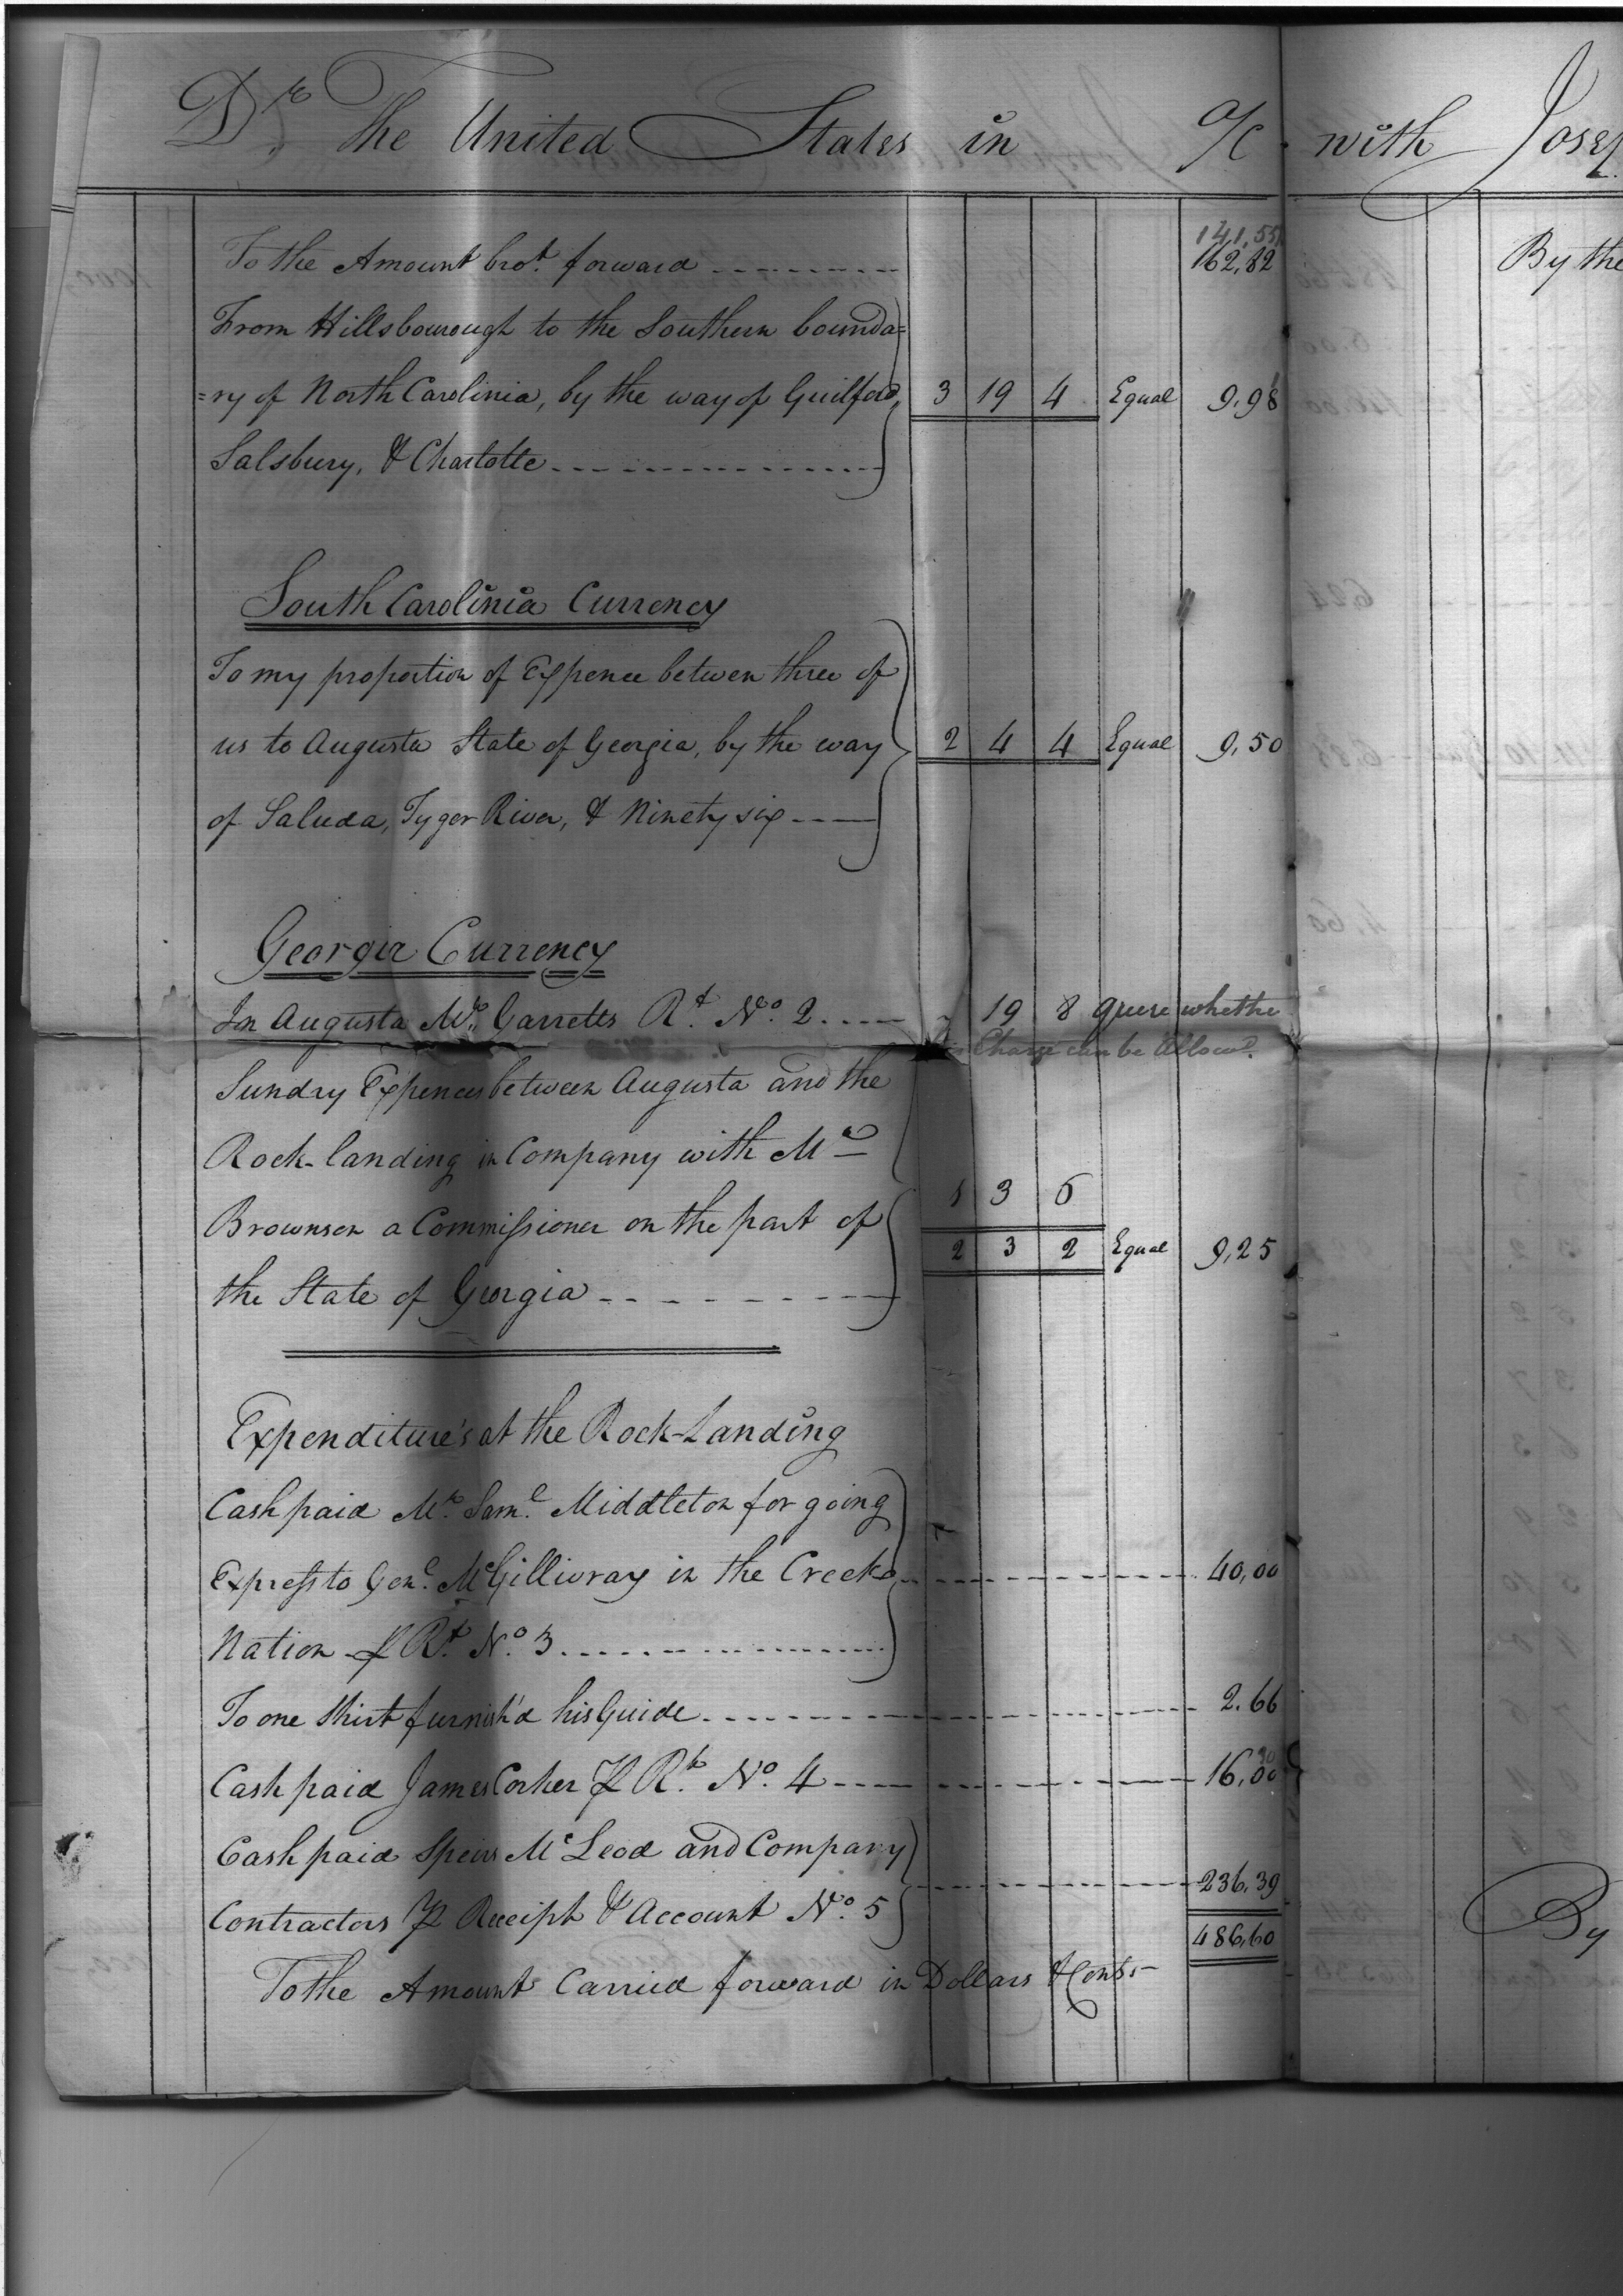 Dr. The United States in a/c with Josep
141,55
To the Amount brot. forward 162,82
From Hillsbourough to the Southern bounda=
=ry of North Carolinia, by the way of Guilford, 3 19 4 Equal 9,98
Salsbury, & Charlotte
South Carolinia Currency
To my proportion of Expence between three of
us to Augusta State of Georgia, by the way 2 4 4 Equal 9,50
of Saluda, Tyger River, & Ninety six
Georgia Currency
In Augusta Mr. Garretts Rt. No. 2 19 8 quere whethe
Charge can be Allowd.
Sundry Expences between Augusta and the
Rock-landing in Company with Mr
1 3 6
Brownson a Commissioner on the part of
2 3 2 Equal 9,25
the State of Georgia
Expenditure's at the Rock-Landing
Cash paid Mr. Saml. Middleton for going
Express to Genl. McGillivray in the Creek 40,00
Nation ⅌ Rt. No. 3
To one Shirt furnish'd his Guide 2.66
Cash paid James Corker ⅌ Rt. No. 4 16,00
Cash paid Speirs McLeod and Company
236,39
Contractors ⅌ Receipt & Account No. 5
486,60
To the Amount Carried forward in Dollars & Cents
By the
By